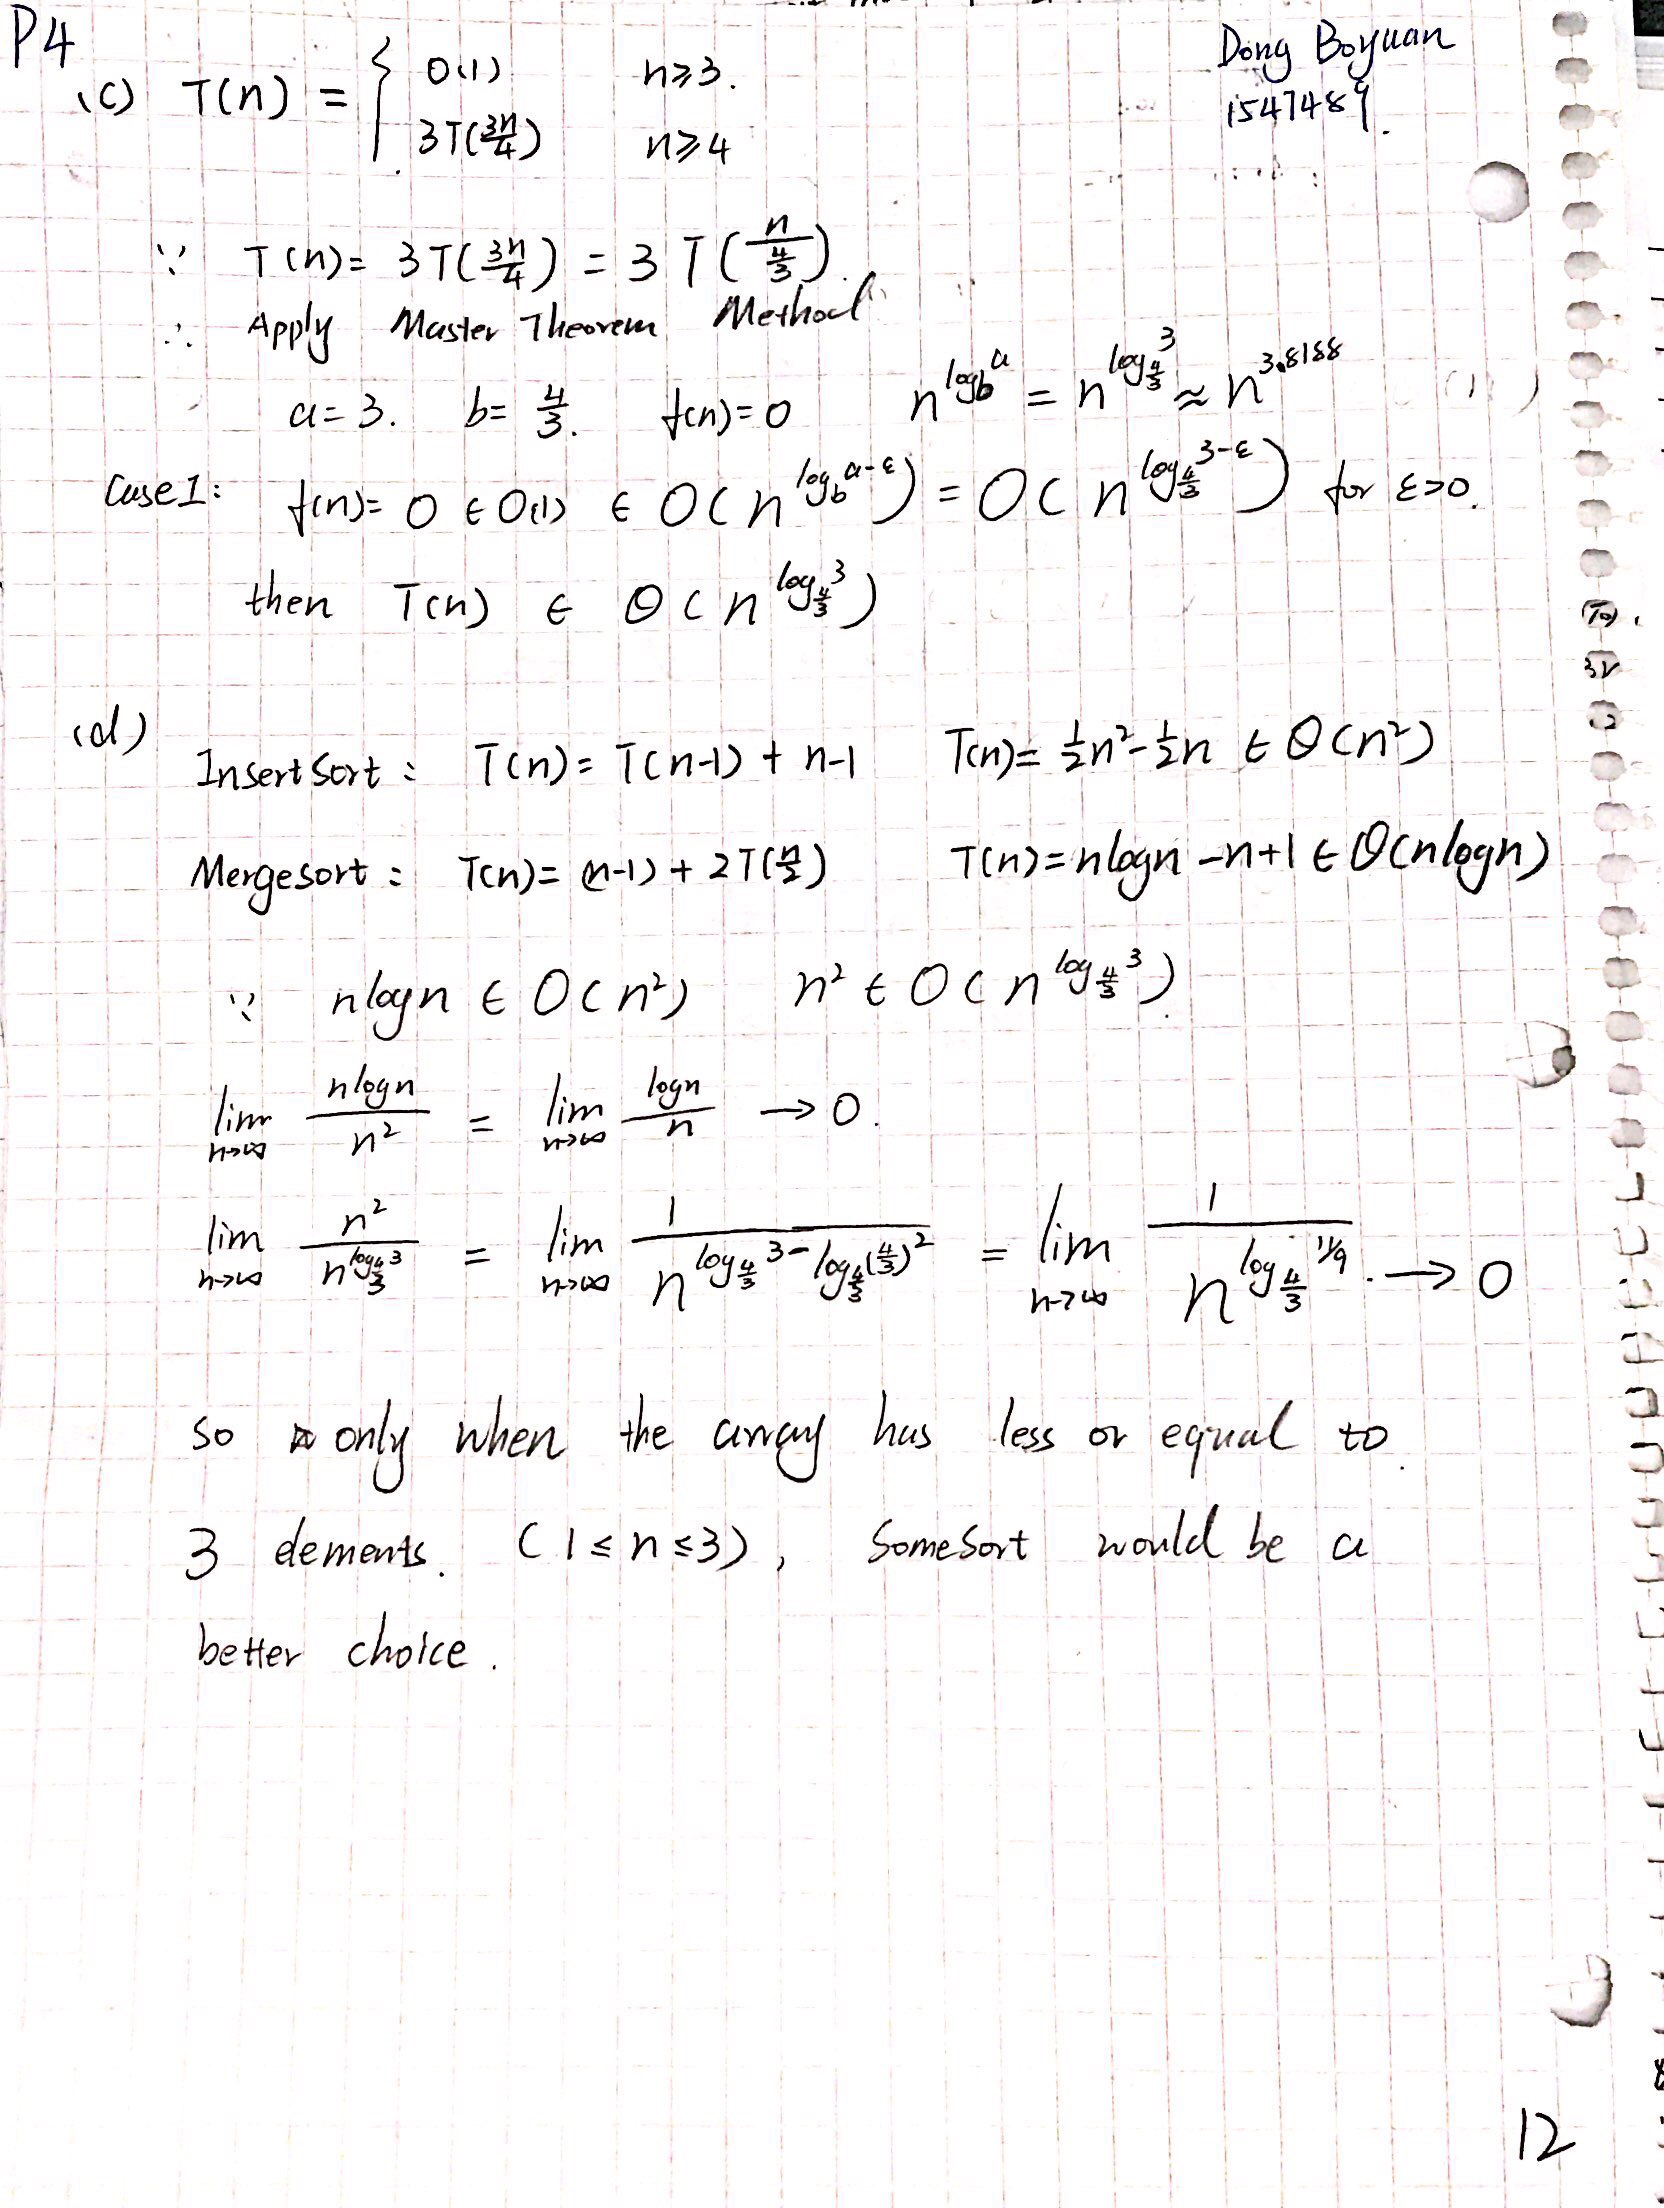 P4
Dong Boyuan
(c) T(n) = { O(1) n≥3.
3T(3n/4) n≥4
∵ T(n) = 3T(3n/4) = 3T(n/(4/3)).
∴ Apply Master Theorem Method
a=3. b=4/3. f(n)=0 n^(log_b a) = n^(log_(4/3) 3) ≈ n^3.8188
Case1: f(n)= 0 ∈ O(1) ∈ O(n^(log_b a-ε)) = O(n^(log_(4/3) 3-ε)) for ε>0.
then T(n) ∈ Θ(n^(log_(4/3) 3))
(d)
InsertSort: T(n)= T(n-1) + n-1 T(n)= ½n²-½n ∈ Θ(n²)
Mergesort: T(n)= (n-1) + 2T(n/2) T(n)= nlogn -n+1 ∈ Θ(nlogn)
∵ nlogn ∈ O(n²) n² ∈ O(n^(log_(4/3) 3)).
lim n→∞ nlogn/n² = lim n→∞ logn/n → 0.
lim n→∞ n²/n^(log_(4/3) 3) = lim n→∞ 1/n^(log_(4/3) 3 - log_(4/3) (4/3)²) = lim n→∞ 1/n^(log_(4/3) ) → 0
so only when the array has less or equal to
3 elements. (1≤n≤3), SomeSort would be a
better choice.
12